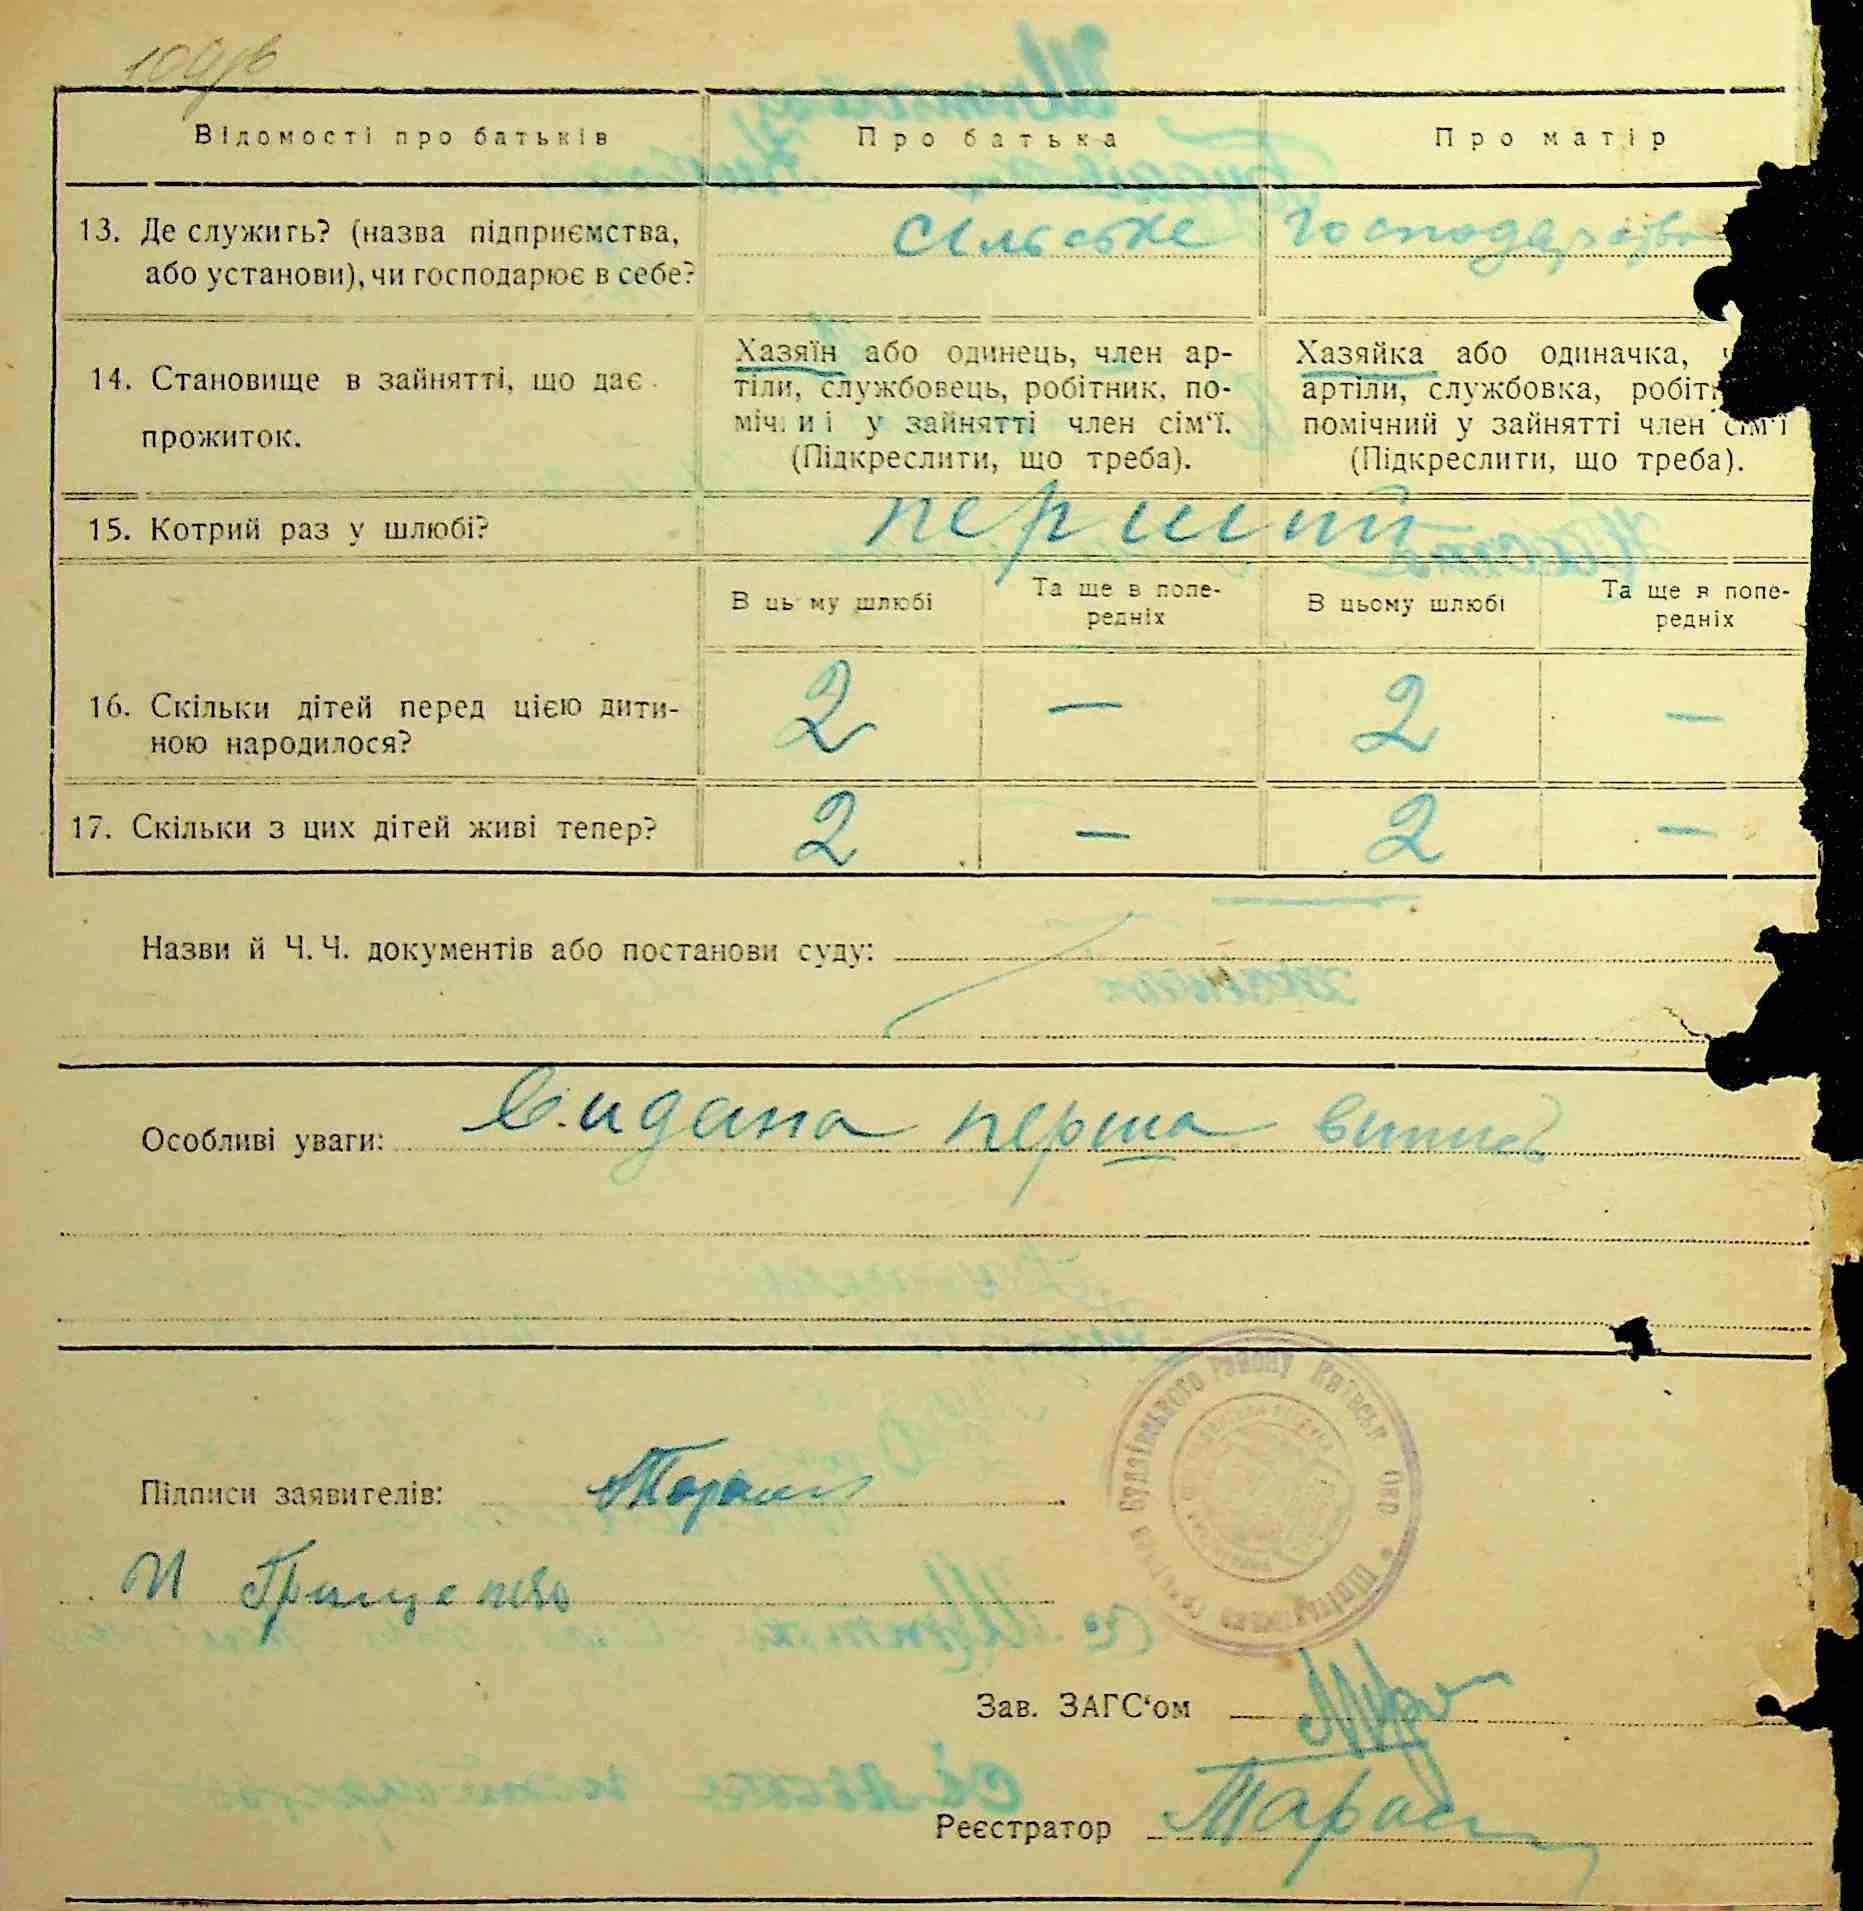 Відомості про батьків
Про батька
Про матір
13. Де служить? (назва підприємства,
або установи), чи господарює в себе?
сільське господарство
14. Становище в зайнятті, що дає
прожиток.
Хазяїн або одинець, член ар-
тіли, службовець, робітник, по-
міч. и і у зайнятті член сім'ї.
(Підкреслити, що треба).
Хазяйка або одиначка,
артіли, службовка, робіт
помічний у зайнятті член сім'ї
(Підкреслити, що треба).
15. Котрий раз у шлюбі?
перший
В цьму шлюбі
Та ще в попе-
редніх
В цьому шлюбі
Та ще в попе-
редніх
16. Скільки дітей перед цією дити-
ною народилося?
2 — 2 —
17. Скільки з цих дітей живі тепер?
2 — 2 —
Назви й Ч. Ч. документів або постанови суду:
Особливі уваги: Видана перша випись
Підписи заявителів: Тарас
И Грищенко
Будаївського району Київськ Окр
Зав. ЗАГС'ом
Реєстратор Тарас